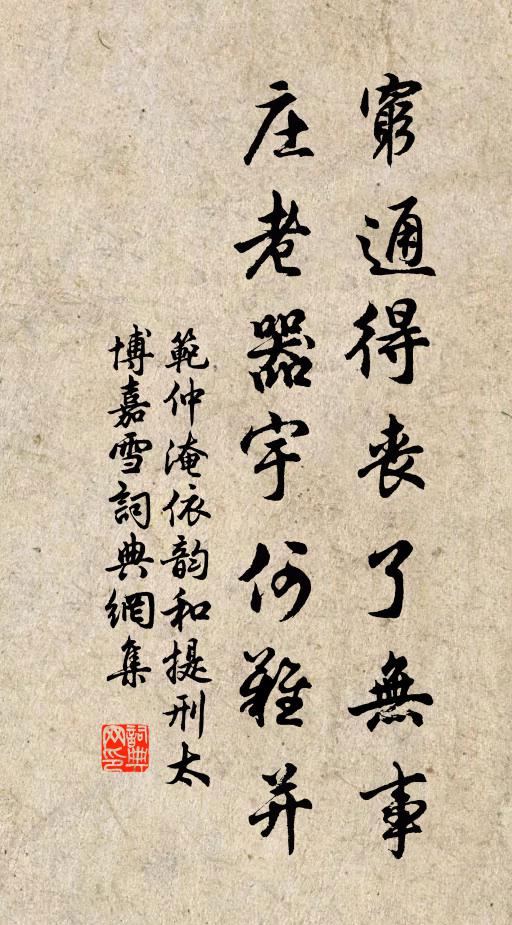 窮通得丧了無事
庄老器宇何難并
範仲淹依韵和提刑太
博嘉雪詞典網集
詞典
网印